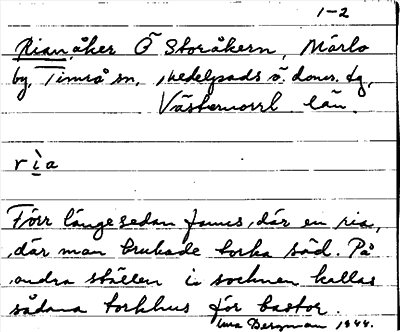 1-2
Rian, åker Ö Storåkern, Märlo
by, Timrå sn, Medelpads ö. doms. tg,
Västernorrl. län.
rìa
Förr länge sedan fanns, där en ria,
där man brukade torka säd. På
andra ställen i socknen kallas
sådana torkhus för bastor.
Bergman 1944.